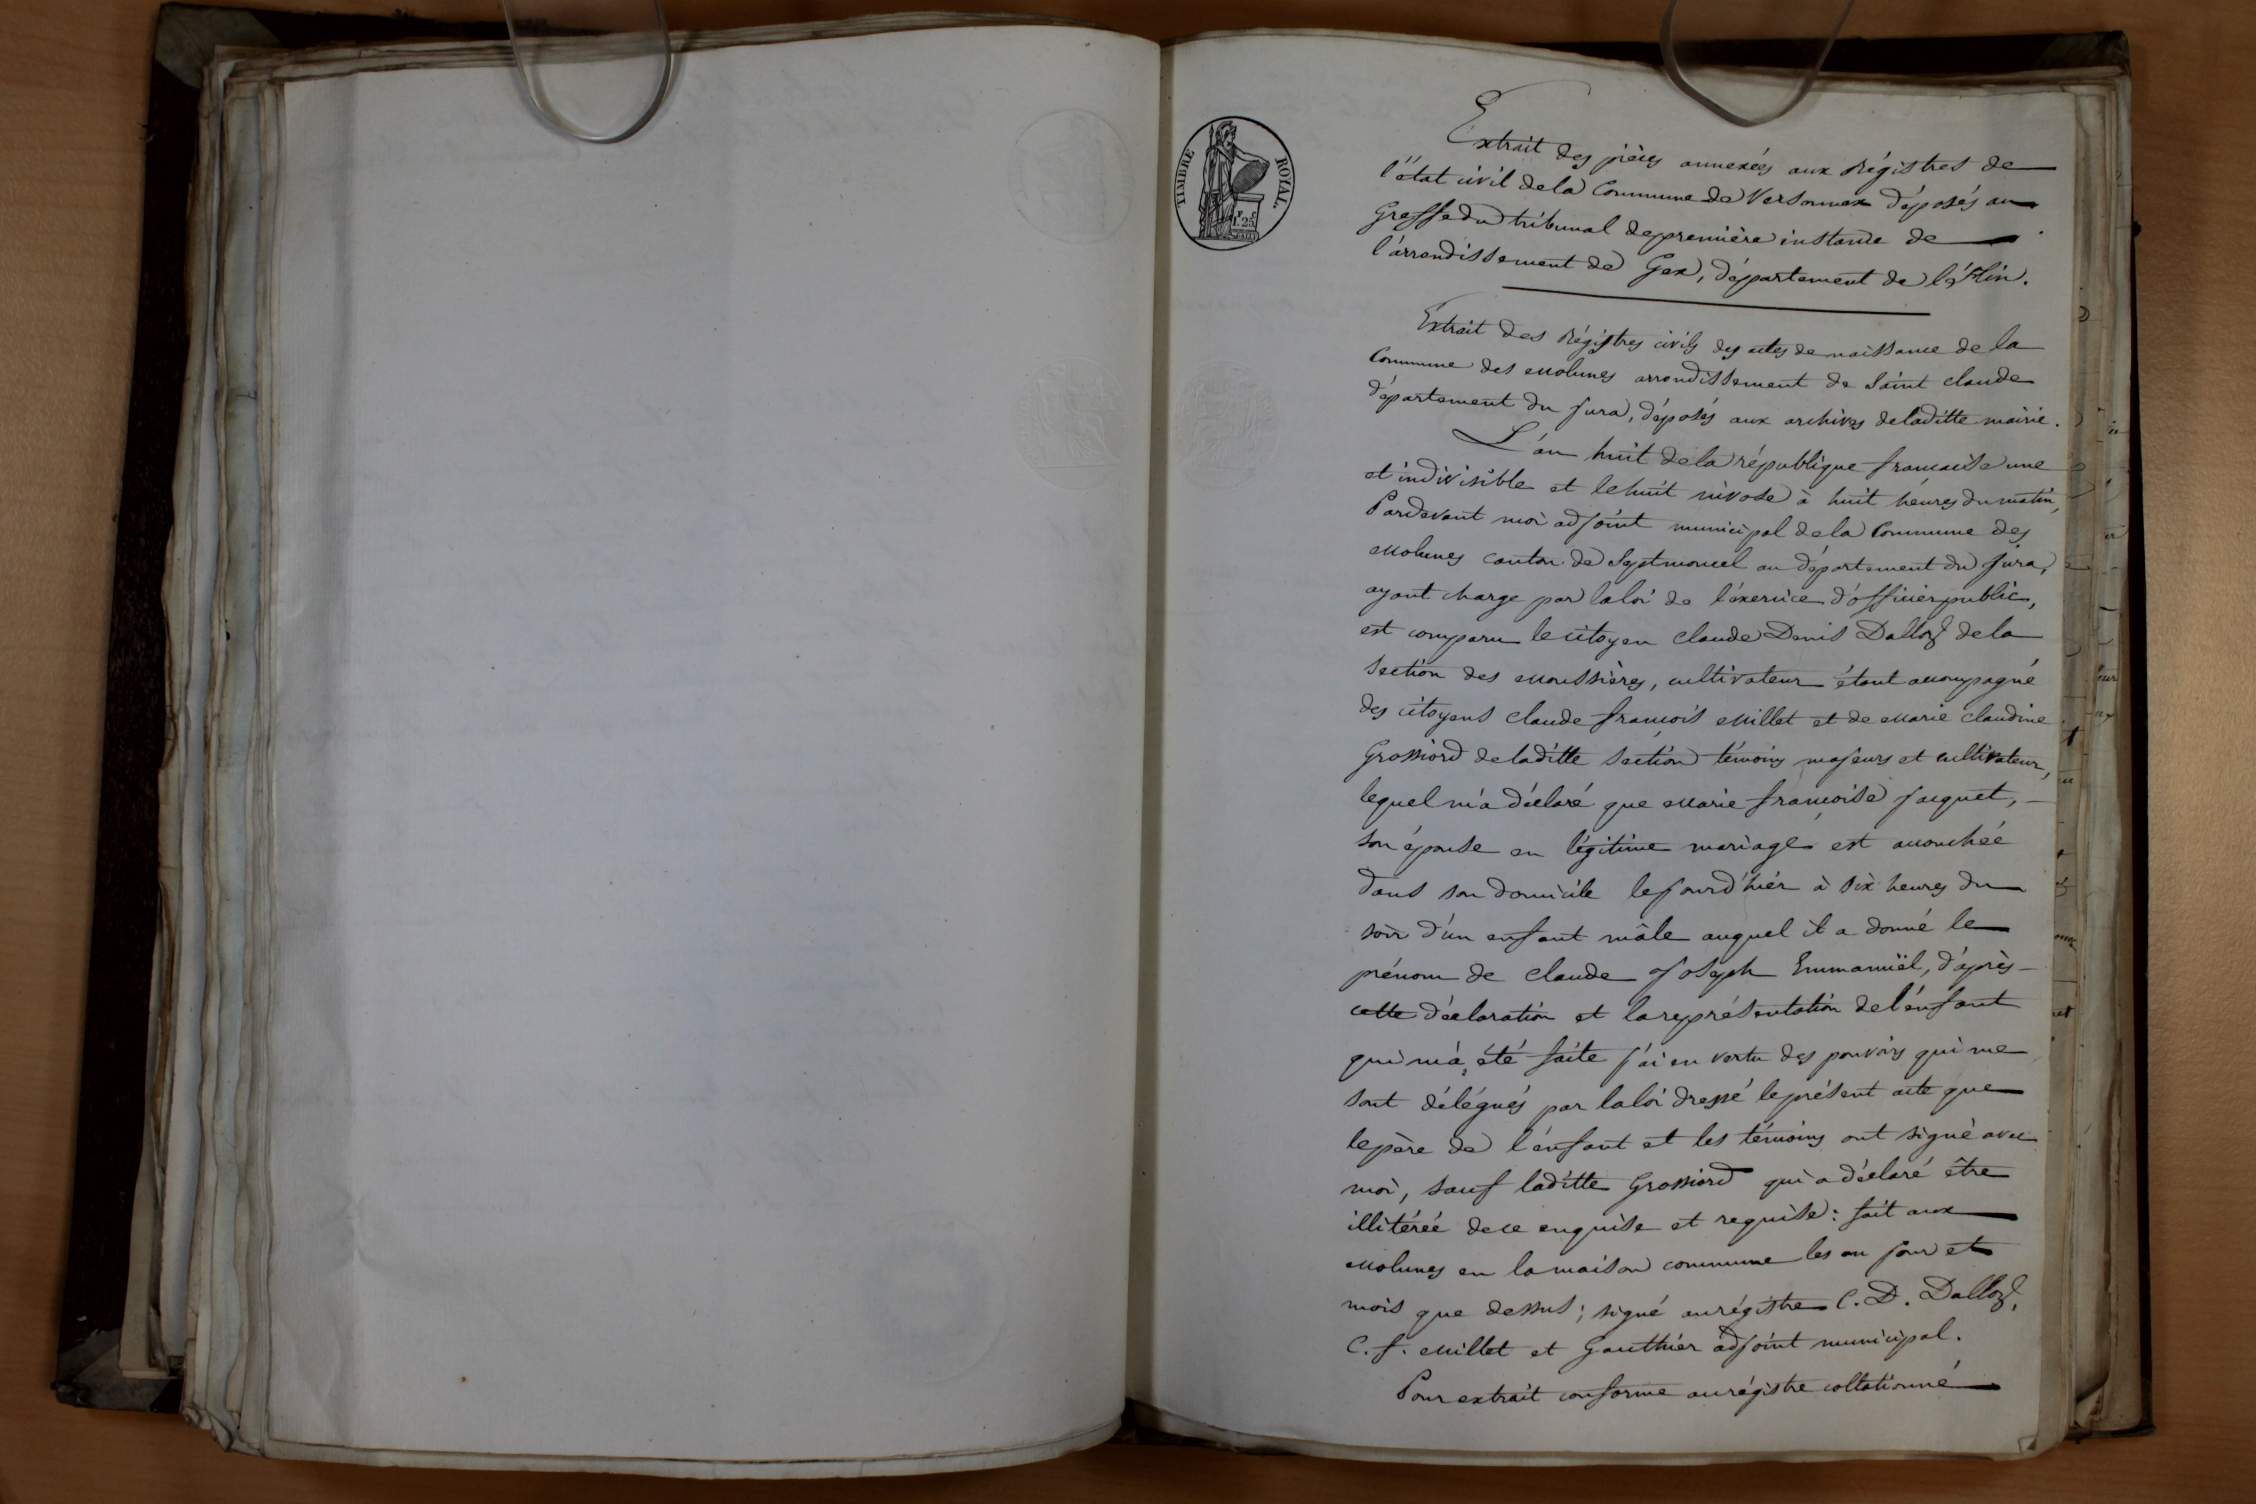 TIMBRE ROYAL.
1F. 25C
Extrait des pièces annexées aux Régistres de
l'état civil de la Commune de Versonnex déposés au
Greffe du tribunal de première instance de
l'arrondissement de Gex, département de l'Ain.
Extrait des Régistres civils des actes de naissance de la
Commune des Molunes arrondissement de Saint Claude
département du Jura, déposés aux archives de laditte mairie.
L'an huit de la république francaise une
et indivisible et le huit nivose à huit heures du matin,
Pardevant moi adjoint municipal de la Commune des
Molunes canton de Septmoncel au département du Jura,
ayant charge par la loi de l'éxercice d'officier public,
est comparu le citoyen Claude Denis Dalloz de la
section des Moussières, cultivateur étant accompagné
des citoyens Claude françois Millet et de Marie Claudine
Grossiord de laditte section témoins majeurs et cultivateur,
lequel m'a déclaré que Marie françoise Jacquet,
son épouse en légitime mariage est accouchée
dans son domicile le jour d'hiér à dix heures du
soir d'un enfant mâle auquel il a donné le
prénom de Claude Joseph Emmanuël, d'après
cette déclaration et la représentation de l'énfant
qui m'a été faite j'ai en vertu des pouvoirs qui me
sont délégués par la loi dressé le présent acte que
le père de l'énfant et les témoins ont signé avec
moi, sauf laditte Grossiord qui a déclaré être
illitérée de ce enquise et requise : fait aux
Molunes en la maison commune les an jour et
mois que dessus ; signé au régistre C. D. Dalloz,
C. f. Millet et Gauthiér adjoint municipal.
Pour extrait conforme au régistre collationné